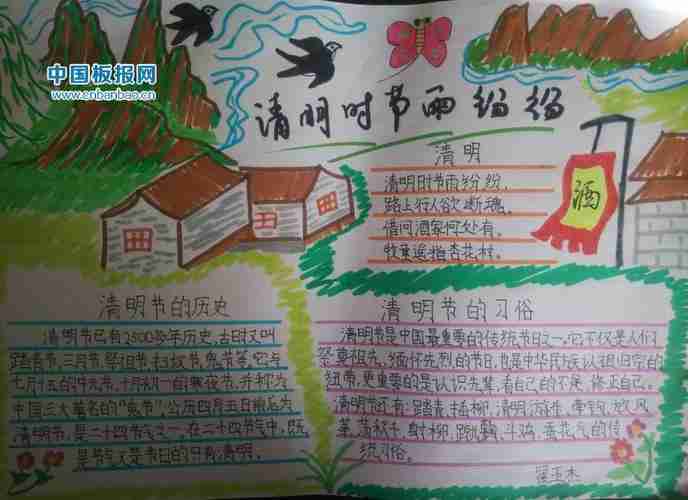 中国板报网
www.cnbanbao.cn
清明时节雨纷纷
清明
清明时节雨纷纷，
路上行人欲断魂。
借问酒家何处有。
牧童遥指杏花村。
酒
清明节的历史
清明节已有2500多年历史，古时又叫
踏青节、三月节、祭祖节、扫坟节、鬼节等。它与
七月十五的中元节、十月初一的寒夜节，并称为
中国三大著名的“鬼节”，公历四月五日前后为
清明节，是二十四节气之一。在二十四节气中，既
是节气又是节日的只有清明。
清明节的习俗
清明节是中国最重要的传统节日之一。它不仅是人们
祭奠祖先、缅怀先烈的节日，也是中华民族认祖归宗的
纽带，更重要的是认识先辈，看自己的不足，修正自己。
清明节还有：踏青、插柳、清明游春、牵钩、放风
筝、荡秋千、射柳、蹴鞠、斗鸡、蚕花气的传
统习俗。